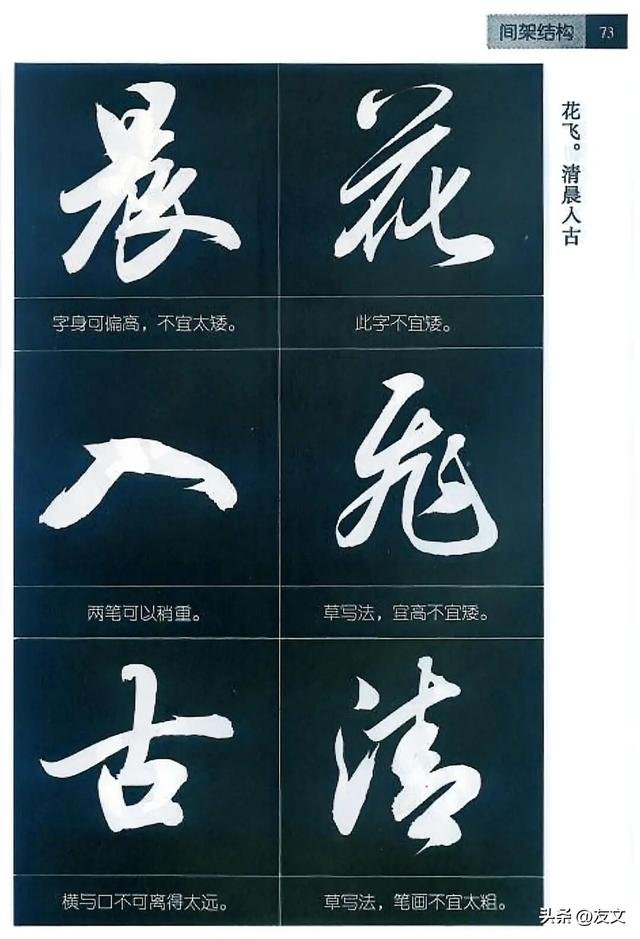 间架结构 73
花飞。清晨入古
花
此字不宜矮。
飞
草写法，宜高不宜矮。
清
草写法，笔画不宜太粗。
晨
字身可偏高，不宜太矮。
入
两笔可以稍重。
古
横与口不可离得太远。
头条@友文